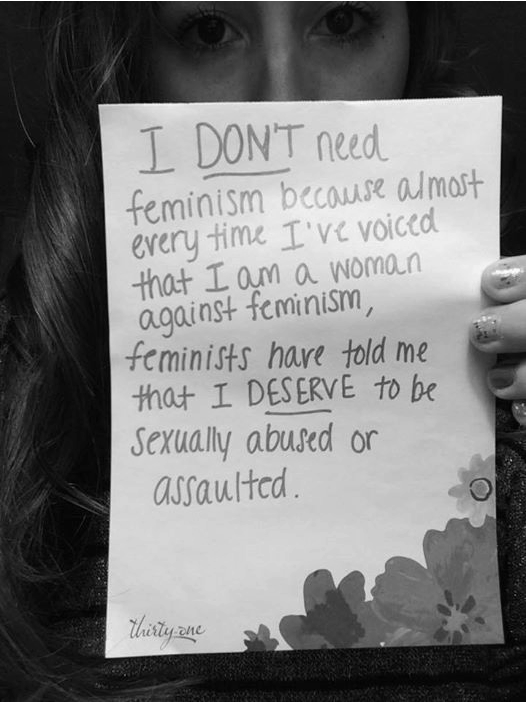 I DON'T need
feminism because almost
every time I've voiced
that I am a woman
against feminism,
feminists have told me
that I DESERVE to be
sexually abused or
assaulted.
thirty-one